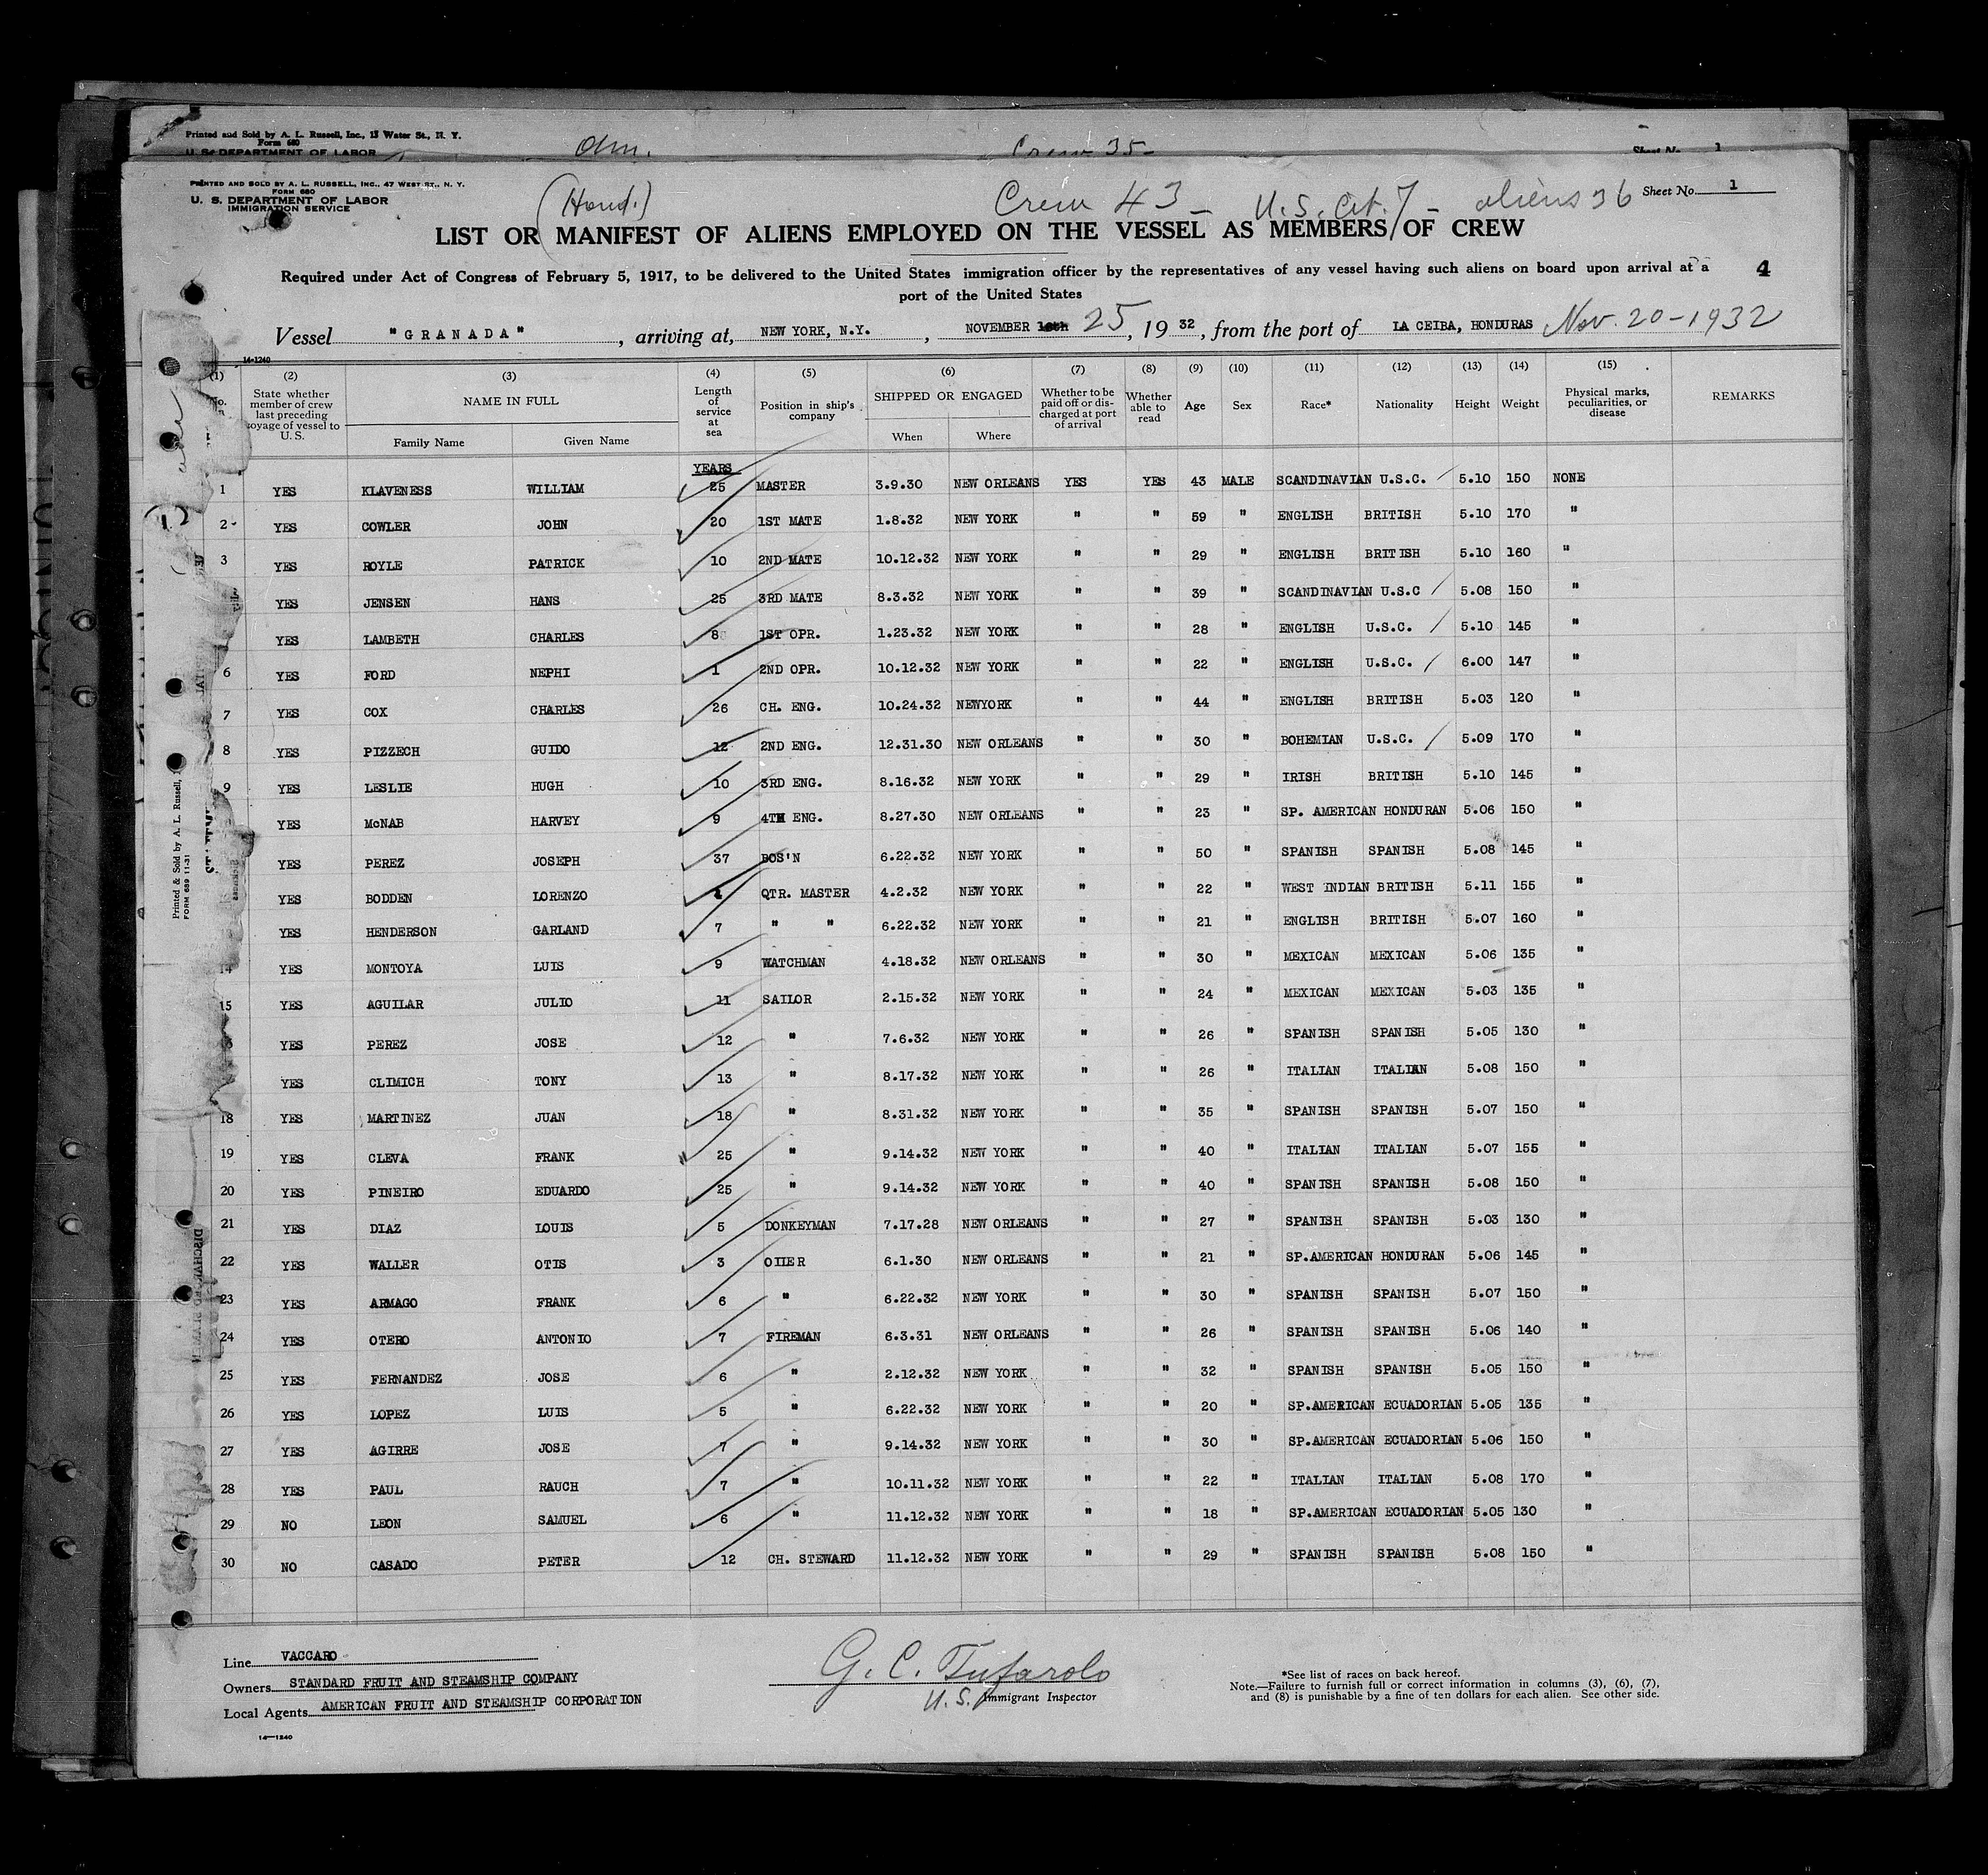 Printed and Sold by A. L. Russell, Inc., 13 Water St., N. Y.
Form 680
U. S. DEPARTMENT OF LABOR
Crew 35-
Sheet No. 1
PRINTED AND SOLD BY A. L. RUSSELL, INC., 47 WEST ST., N. Y.
FORM 680
U. S. DEPARTMENT OF LABOR
IMMIGRATION SERVICE
(Hond.)
Crew 43 - U.S. Cit. 7 - aliens 36
Sheet No. 1
LIST OR MANIFEST OF ALIENS EMPLOYED ON THE VESSEL AS MEMBERS OF CREW
Required under Act of Congress of February 5, 1917, to be delivered to the United States immigration officer by the representatives of any vessel having such aliens on board upon arrival at a
port of the United States
4
Vessel "GRANADA", arriving at, NEW YORK, N.Y., NOVEMBER 25, 1932, from the port of LA CEIBA, HONDURAS Nov. 20-1932
14-1240
(1) (2) (3) (4) (5) (6) (7) (8) (9) (10) (11) (12) (13) (14) (15)
No. State whether member of crew last preceding voyage of vessel to U. S. NAME IN FULL Family Name Given Name Length of service at sea Position in ship's company SHIPPED OR ENGAGED When Where Whether to be paid off or discharged at port of arrival Whether able to read Age Sex Race* Nationality Height Weight Physical marks, peculiarities, or disease REMARKS
YEARS
1 YES KLAVENESS WILLIAM 25 MASTER 3.9.30 NEW ORLEANS YES YES 43 MALE SCANDINAVIAN U.S.C. 5.10 150 NONE
2 YES COWLER JOHN 20 1ST MATE 1.8.32 NEW YORK " " 59 " ENGLISH BRITISH 5.10 170 "
3 YES ROYLE PATRICK 10 2ND MATE 10.12.32 NEW YORK " " 29 " ENGLISH BRITISH 5.10 160 "
YES JENSEN HANS 25 3RD MATE 8.3.32 NEW YORK " " 39 " SCANDINAVIAN U.S.C 5.08 150 "
YES LAMBETH CHARLES 8 1ST OPR. 1.23.32 NEW YORK " " 28 " ENGLISH U.S.C. 5.10 145 "
6 YES FORD NEPHI 1 2ND OPR. 10.12.32 NEW YORK " " 22 " ENGLISH U.S.C. 6.00 147 "
7 YES COX CHARLES 26 CH. ENG. 10.24.32 NEWYORK " " 44 " ENGLISH BRITISH 5.03 120 "
8 YES PIZZECH GUIDO 12 2ND ENG. 12.31.30 NEW ORLEANS " " 30 " BOHEMIAN U.S.C. 5.09 170 "
9 YES LESLIE HUGH 10 3RD ENG. 8.16.32 NEW YORK " " 29 " IRISH BRITISH 5.10 145 "
YES McNAB HARVEY 9 4TH ENG. 8.27.30 NEW ORLEANS " " 23 " SP. AMERICAN HONDURAN 5.06 150 "
YES PEREZ JOSEPH 37 BOS'N 6.22.32 NEW YORK " " 50 " SPANISH SPANISH 5.08 145 "
YES BODDEN LORENZO QTR. MASTER 4.2.32 NEW YORK " " 22 " WEST INDIAN BRITISH 5.11 155 "
YES HENDERSON GARLAND 7 " " 6.22.32 NEW YORK " " 21 " ENGLISH BRITISH 5.07 160 "
14 YES MONTOYA LUIS 9 WATCHMAN 4.18.32 NEW ORLEANS " " 30 " MEXICAN MEXICAN 5.06 135 "
15 YES AGUILAR JULIO 11 SAILOR 2.15.32 NEW YORK " " 24 " MEXICAN MEXICAN 5.03 135 "
YES PEREZ JOSE 12 " 7.6.32 NEW YORK " " 26 " SPANISH SPANISH 5.05 130 "
YES CLIMICH TONY 13 " 8.17.32 NEW YORK " " 26 " ITALIAN ITALIAN 5.08 150 "
18 YES MARTINEZ JUAN 18 " 8.31.32 NEW YORK " " 35 " SPANISH SPANISH 5.07 150 "
19 YES CLEVA FRANK 25 " 9.14.32 NEW YORK " " 40 " ITALIAN ITALIAN 5.07 155 "
20 YES PINEIRO EDUARDO 25 " 9.14.32 NEW YORK " " 40 " SPANISH SPANISH 5.08 150 "
21 YES DIAZ LOUIS 5 DONKEYMAN 7.17.28 NEW ORLEANS " " 27 " SPANISH SPANISH 5.03 130 "
22 YES WALLER OTIS 3 OILER 6.1.30 NEW ORLEANS " " 21 " SP.AMERICAN HONDURAN 5.06 145 "
23 YES ARMAGO FRANK 6 " 6.22.32 NEW YORK " " 30 " SPANISH SPANISH 5.07 150 "
24 YES OTERO ANTONIO 7 FIREMAN 6.3.31 NEW ORLEANS " " 26 " SPANISH SPANISH 5.06 140 "
25 YES FERNANDEZ JOSE 6 " 2.12.32 NEW YORK " " 32 " SPANISH SPANISH 5.05 150 "
26 YES LOPEZ LUIS 5 " 6.22.32 NEW YORK " " 20 " SP.AMERICAN ECUADORIAN 5.05 135 "
27 YES AGIRRE JOSE 7 " 9.14.32 NEW YORK " " 30 " SP.AMERICAN ECUADORIAN 5.06 150 "
28 YES PAUL RAUCH 7 " 10.11.32 NEW YORK " " 22 " ITALIAN ITALIAN 5.08 170 "
29 NO LEON SAMUEL 6 " 11.12.32 NEW YORK " " 18 " SP.AMERICAN ECUADORIAN 5.05 130 "
30 NO CASADO PETER 12 CH. STEWARD 11.12.32 NEW YORK " " 29 " SPANISH SPANISH 5.08 150 "
Printed & Sold by A. L. Russell,
FORM 689 11-31
Line VACCARO
Owners STANDARD FRUIT AND STEAMSHIP COMPANY
Local Agents AMERICAN FRUIT AND STEAMSHIP CORPORATION
14-1240
G. C. Tufarolo
U.S. Immigrant Inspector
*See list of races on back hereof.
Note.—Failure to furnish full or correct information in columns (3), (6), (7),
and (8) is punishable by a fine of ten dollars for each alien. See other side.